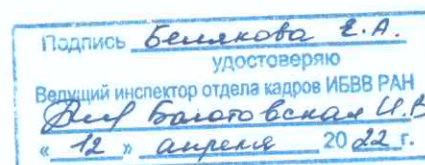 Подпись Белякова Е.А.
удостоверяю
Ведущий инспектор отдела кадров ИБВВ РАН
Болотовская И.В
« 12 » апреля 20 22 г.